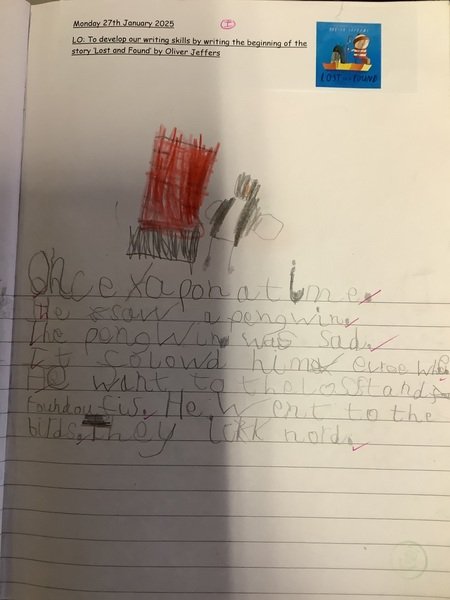 Monday 27th January 2025
I
LO: To develop our writing skills by writing the beginning of the
story 'Lost and Found' by Oliver Jeffers
OLIVER JEFFERS
LOST AND FOUND
Once xaponatime.
He saw a pengwin.
The pengwin was sad.
It folowd him evrewhe
He want to the losstand
foundoufis. He went to the
birds. They ickk nord.